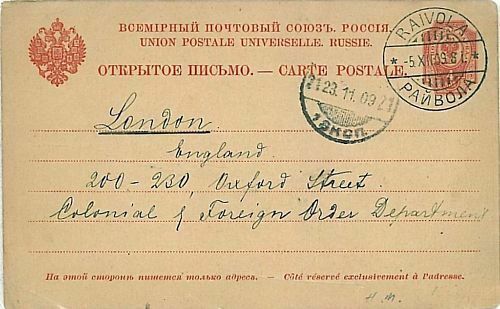 ВСЕМІРНЫЙ ПОЧТОВЫЙ СОЮЗЪ. РОССІЯ.
UNION POSTALE UNIVERSELLE. RUSSIE.
ОТКРЫТОЕ ПИСЬМО. — CARTE POSTALE.
RAIVOLA
РАЙВОЛА
23.11.09
London
England
200-230 Oxford Street
Colonial & Foreign Order Department
На этой сторонѣ пишется только адресъ. — Côté réservé exclusivement à l'adresse.